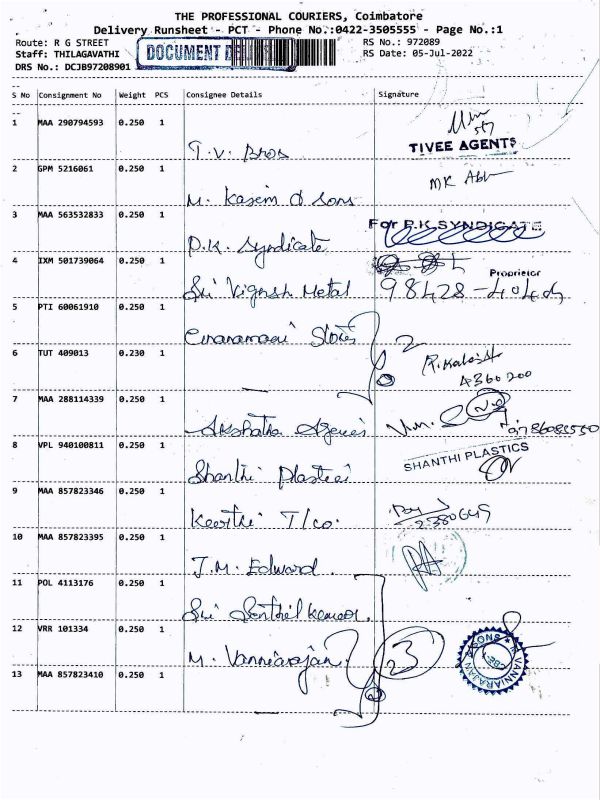 THE PROFESSIONAL COURIERS, Coimbatore
Delivery Runsheet - PCT - Phone No.:0422-3505555 - Page No.:1
Route: R G STREET RS No.: 972089
Staff: THILAGAVATHI DOCUMENT RS Date: 05-Jul-2022
DRS No.: DCJB97208901
S No Consignment No Weight PCS Consignee Details Signature
1 MAA 290794593 0.250 1
T.V. Bros TIVEE AGENTS
2 GPM 5216061 0.250 1
M. Kasim & Sons
3 MAA 563532833 0.250 1 For P.K. SYNDICATE
P.K. Syndicate
4 IXM 501739064 0.250 1
Proprietor
Sri Vignesh Metal 98428-40409
5 PTI 60061910 0.250 1
Stores
6 TUT 409013 0.230 1 2
4360200
7 MAA 288114339 0.250 1
Akshatha Agencies
8 VPL 940100811 0.250 1 SHANTHI PLASTICS
Shanthi Plastics
9 MAA 857823346 0.250 1
Keerthi T/Co. 2380649
10 MAA 857823395 0.250 1
J.M. Edward
11 POL 4113176 0.250 1
Sri Senthil Kumar
12 VRR 101334 0.250 1
M. Vanniarajan 23 M VANNIARAJAN SONS CBE-1
13 MAA 857823410 0.250 1